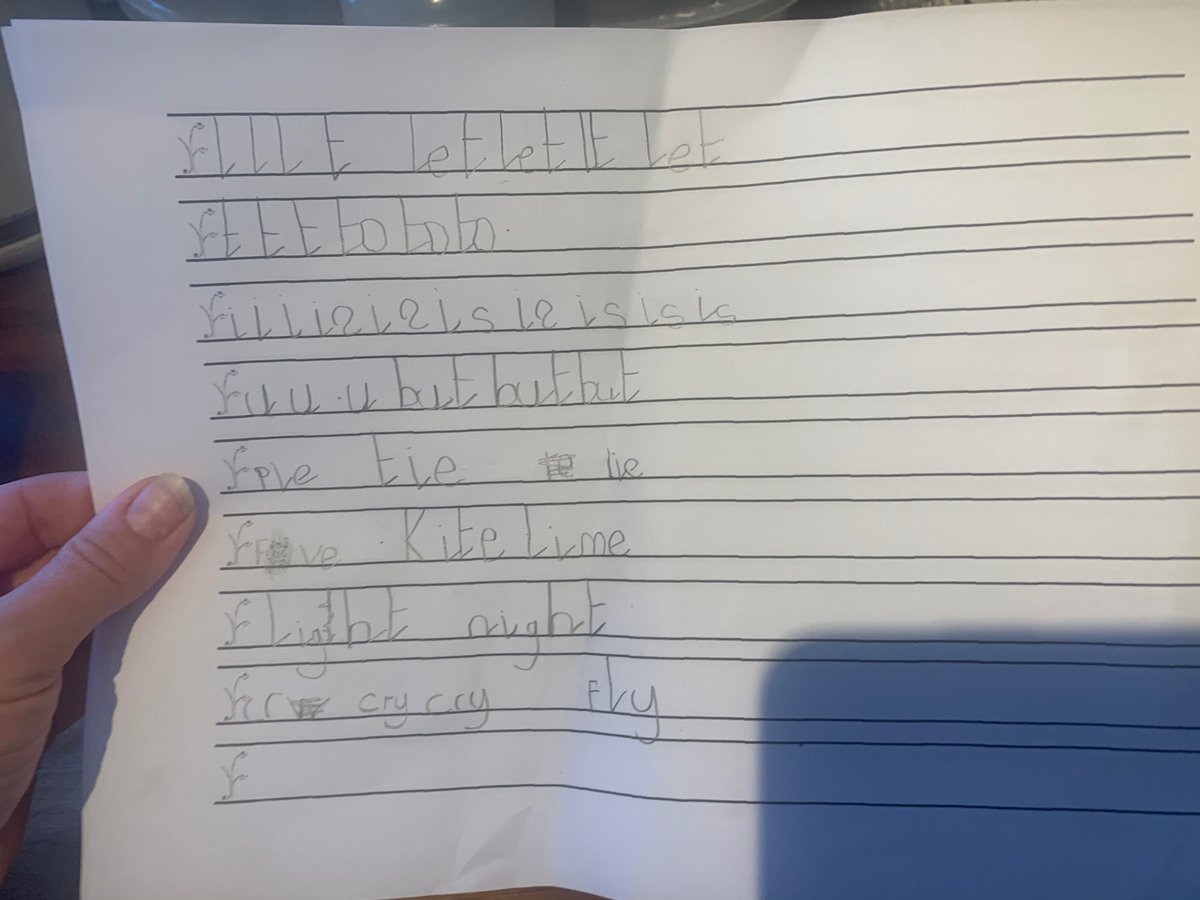 l l l t let let lt let
t t t to to to
i i i is is is is is is is
u u u but but but
pie tie lie
ve Kite lime
light night
cry cry Fly